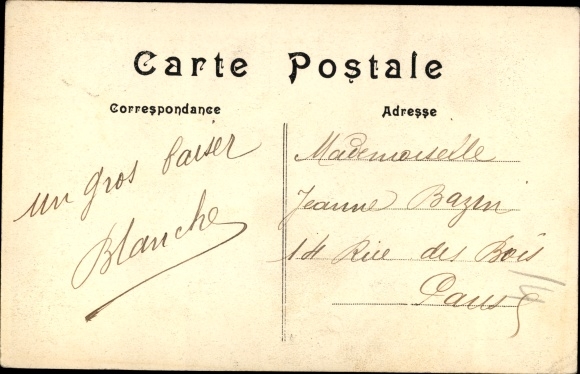 Carte Postale
Correspondance
Adresse
un gros baiser
Blanche
Mademoiselle
Jeanne Bazin
14 Rue des Bois
Paris